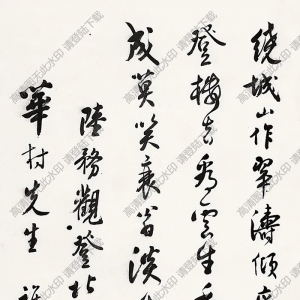 繞城山作翠濤傾
登樓去看雲生
成莫笑衰翁淡
陸務觀登北
華村先生